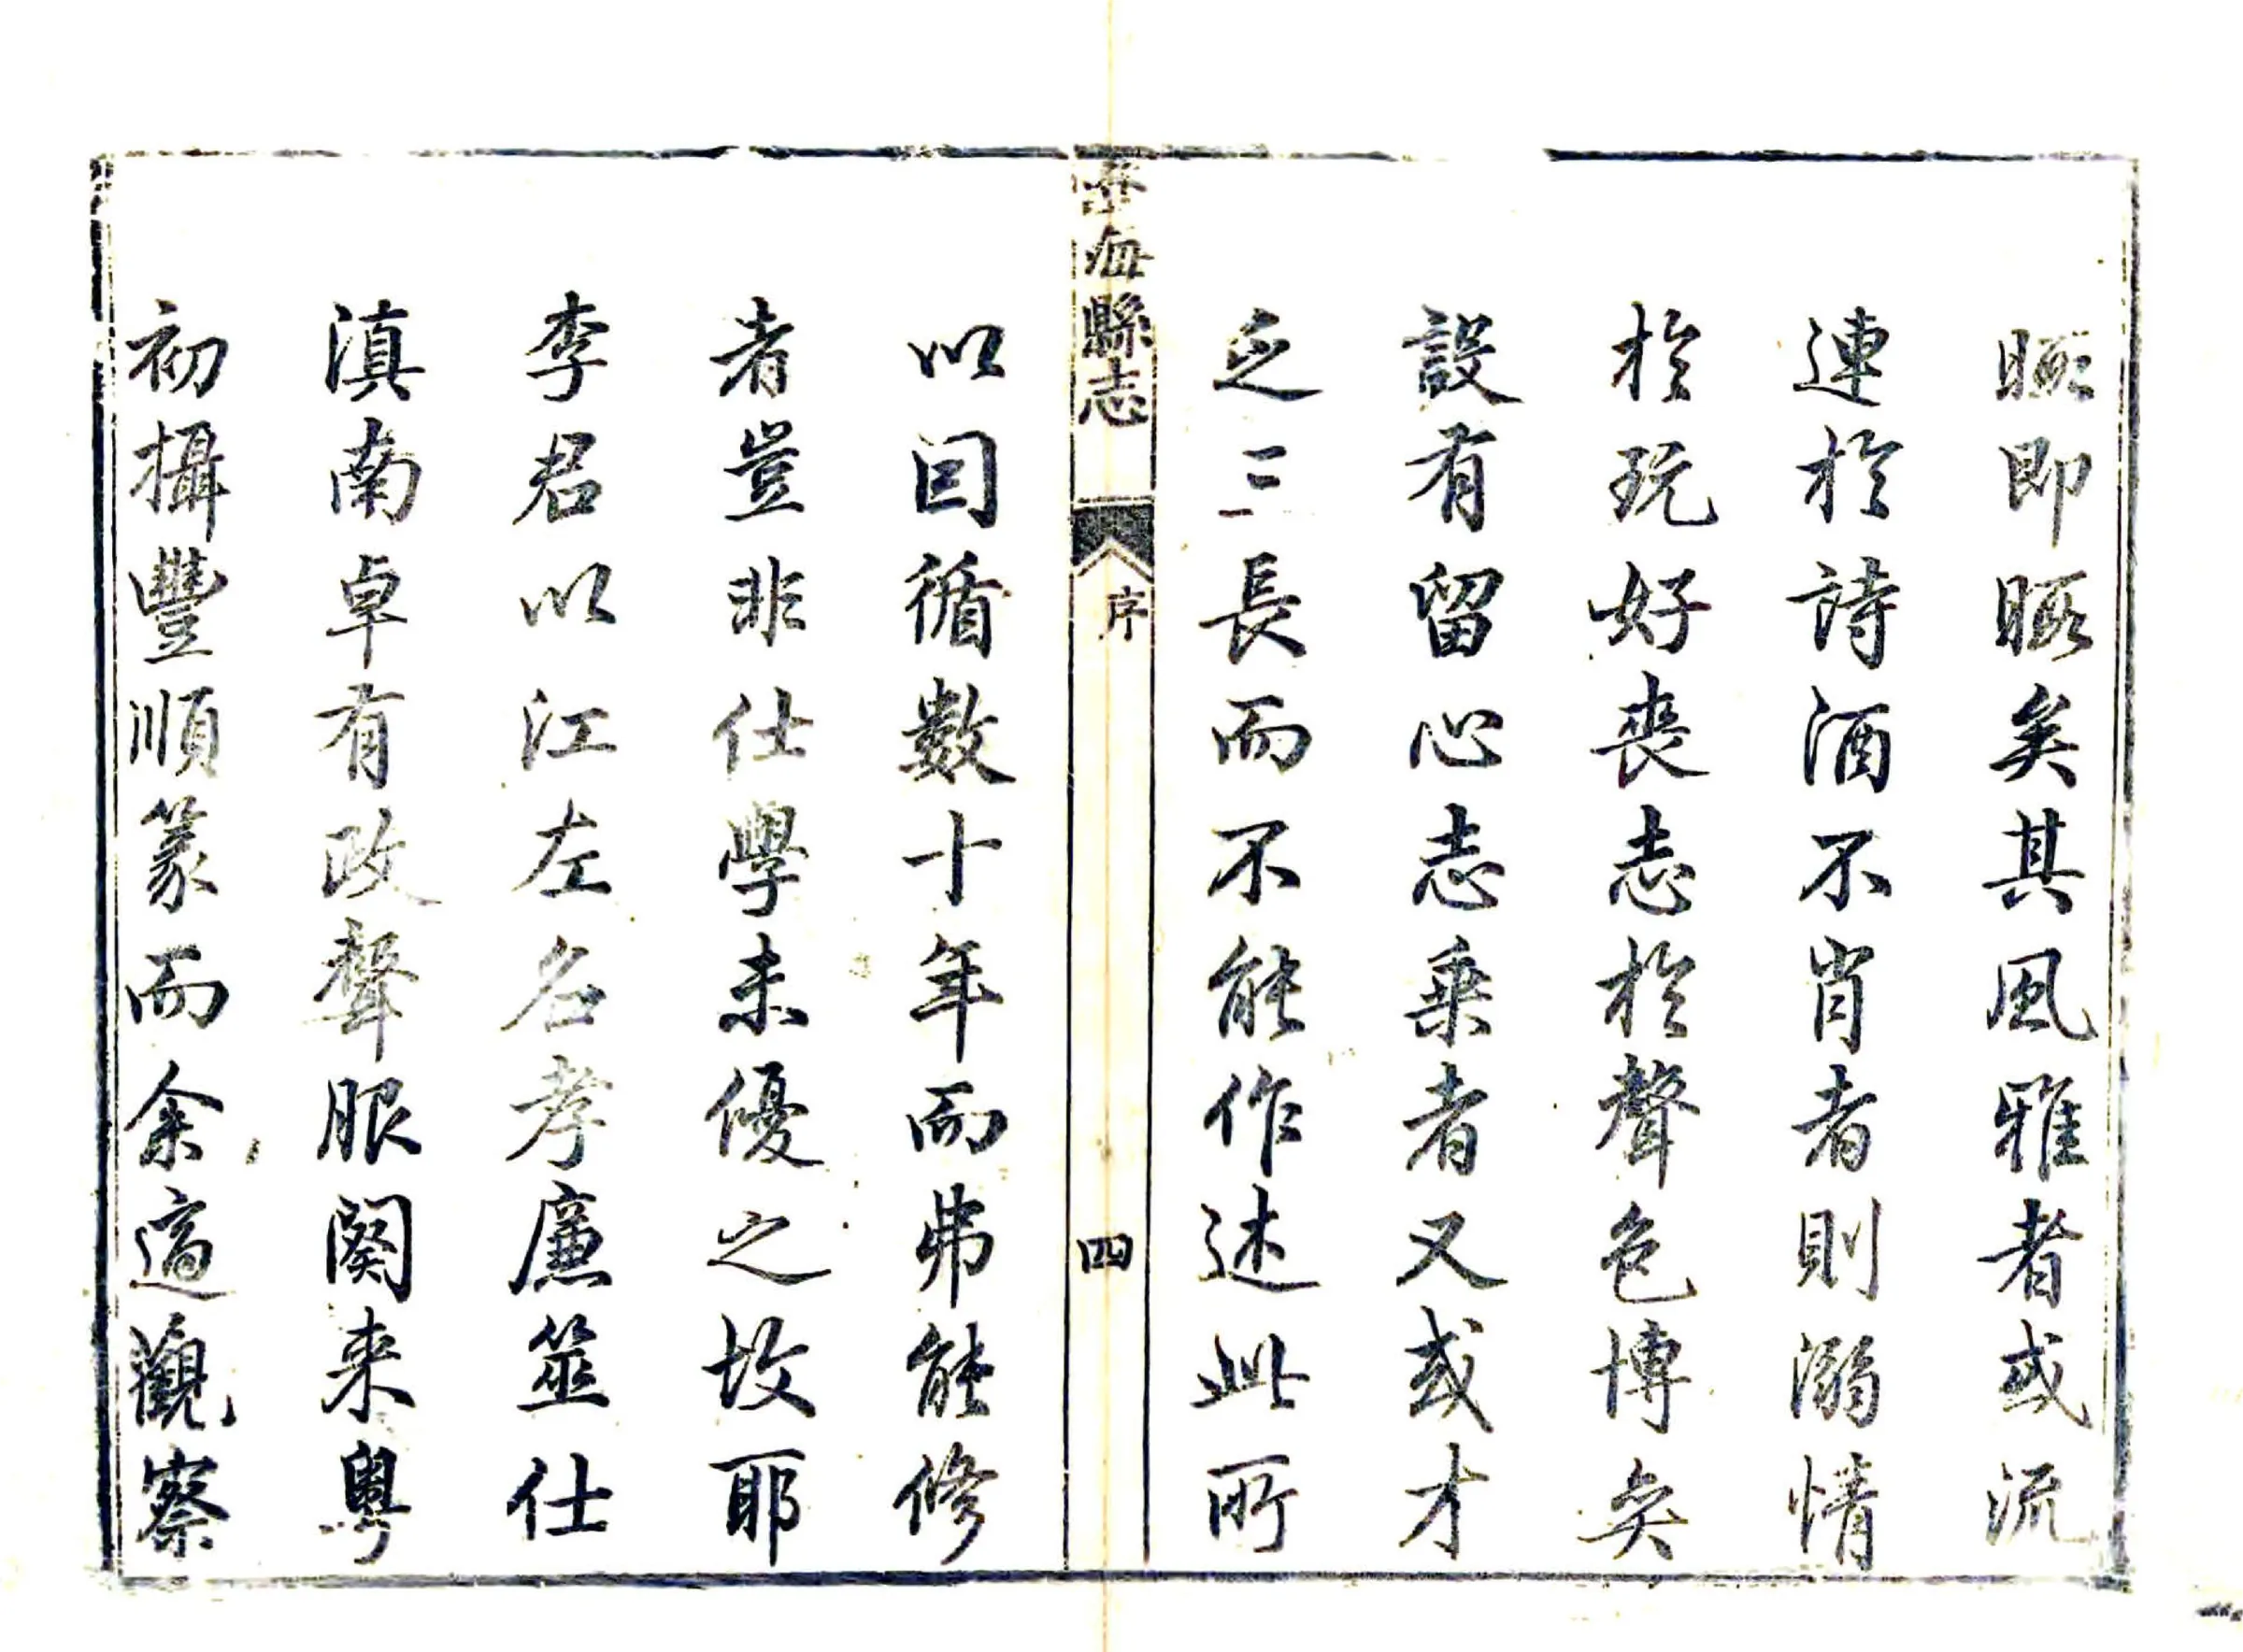 暇即暇矣其風雅者或流
連於詩酒不肖者則溺情
於玩好喪志於聲色博奕
設有留心志乘者又或才
乏三長而不能作述此所
澄海縣志 序 四
以囙循數十年而弗能修
者豈非仕學未優之故耶
李君以江左名孝廉筮仕
滇南卓有政聲服闋来粵
初攝豐順篆而余適觀察